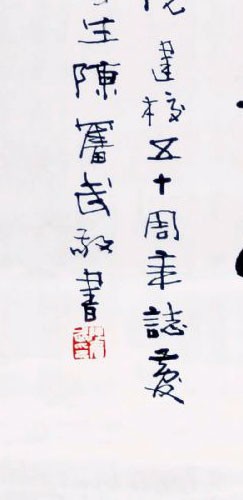 建校五十周年誌慶
生陳奮武敬書